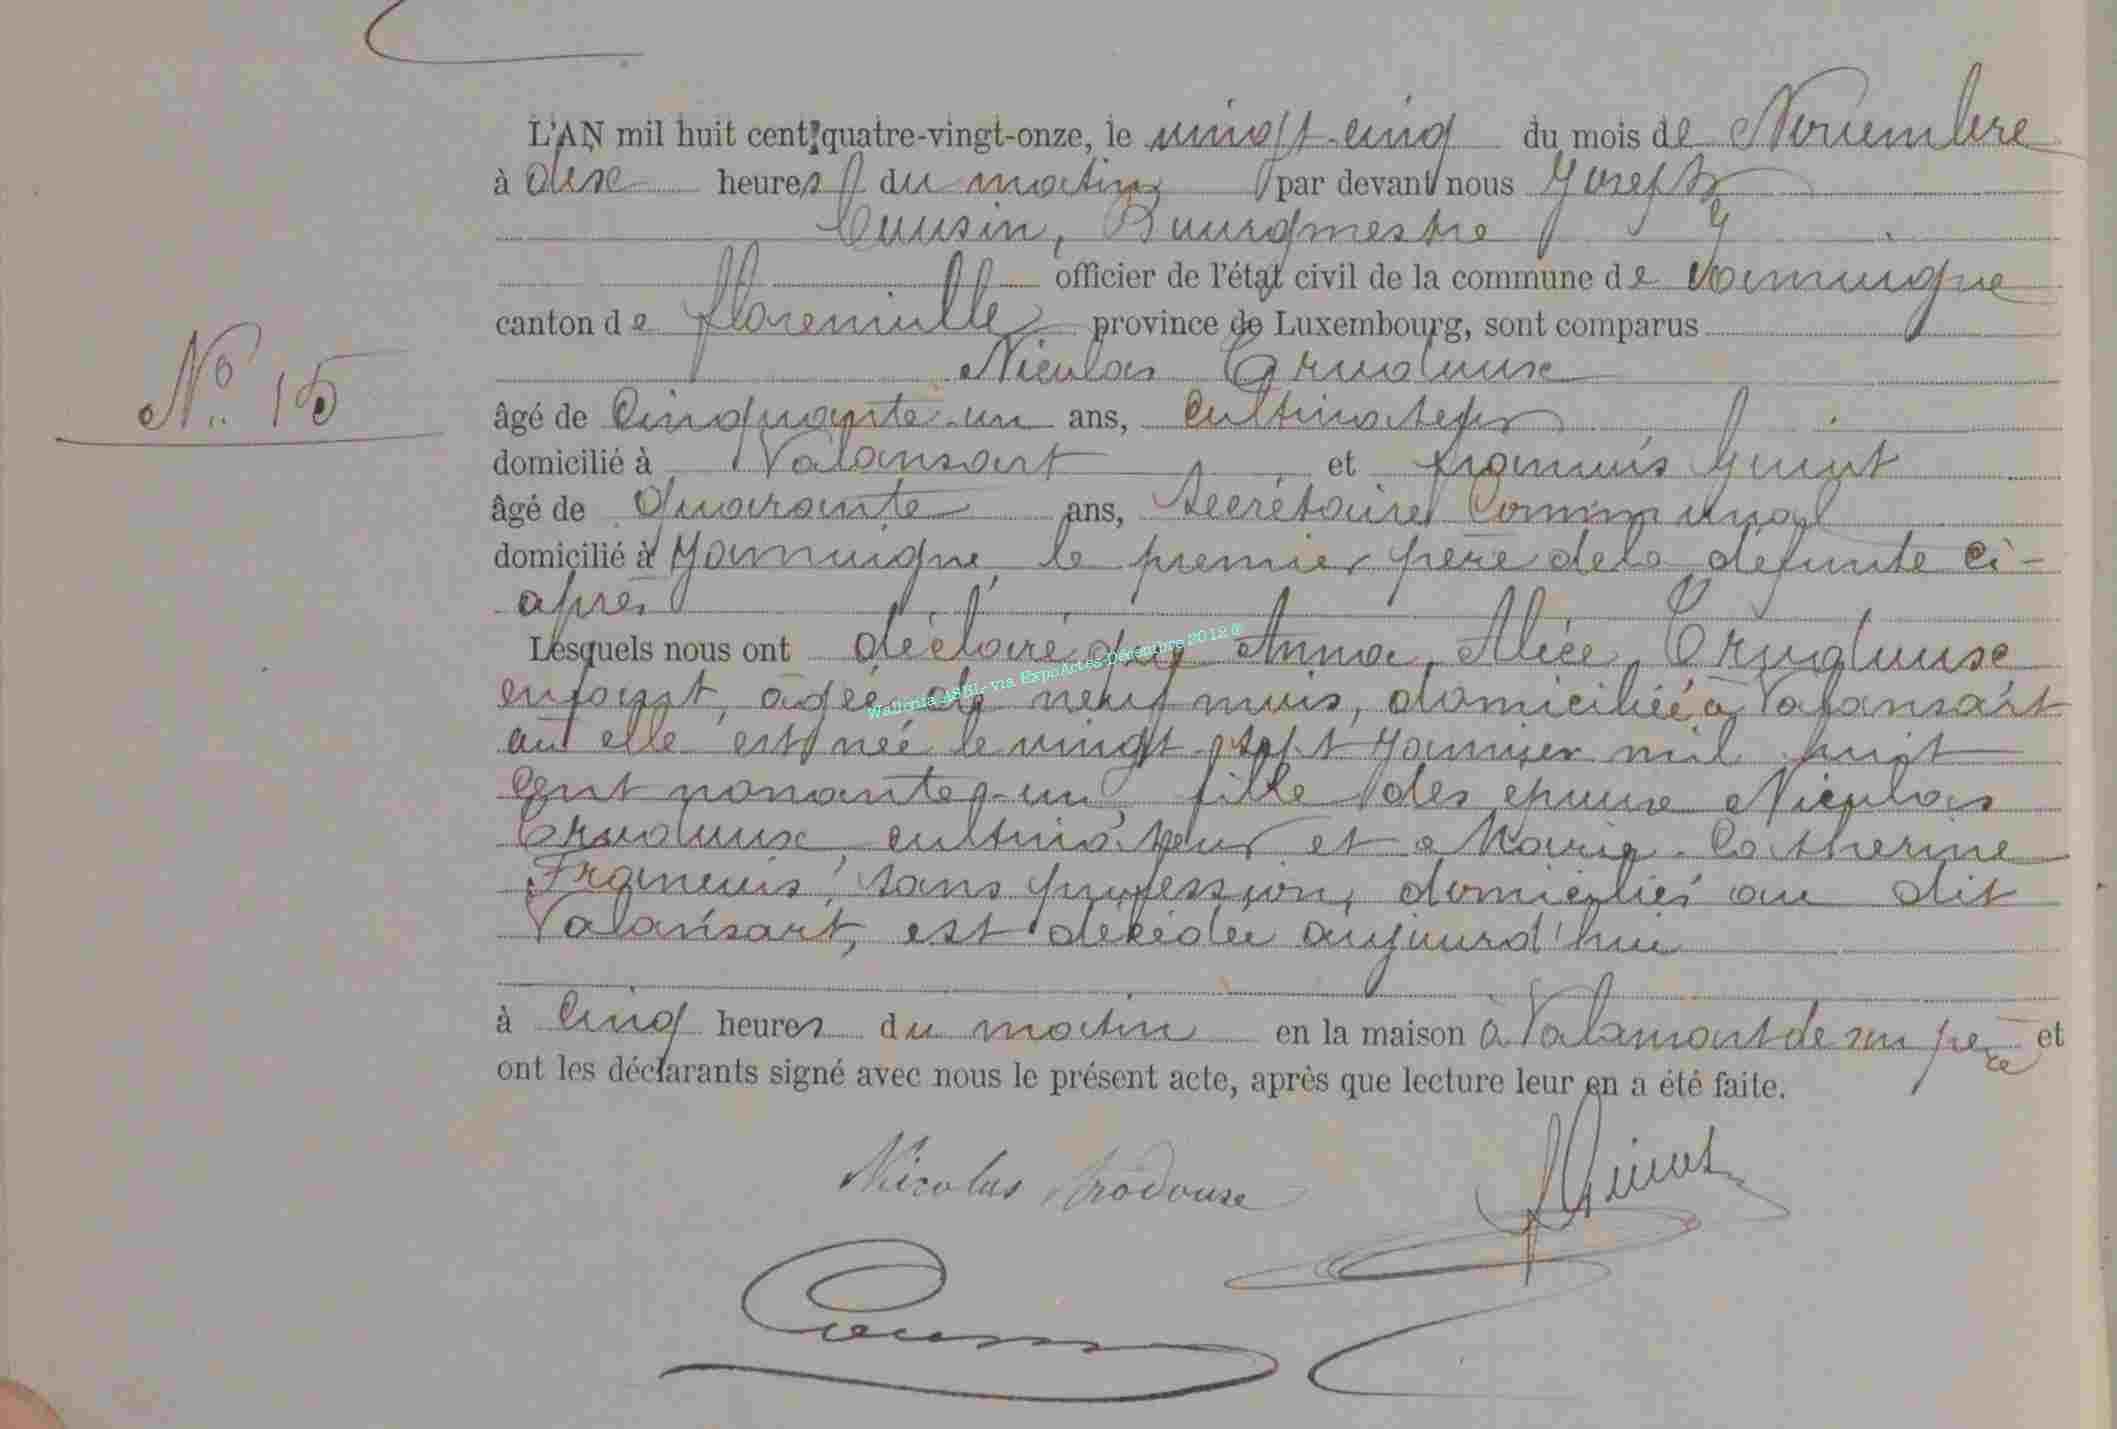 L'AN mil huit cent quatre-vingt-onze, le vingt-cinq du mois de Novembre
à dix heures du matin par devant nous Joseph
Cousin, Bourgmestre
officier de l'état civil de la commune de Jamoigne
canton de Florenville province de Luxembourg, sont comparus
Nicolas Arnoldouse
N° 15
âgé de Cinquante-un ans, Cultivateur
domicilié à Valansart et François Guiot
âgé de Quarante ans, Secrétaire Communal
domicilié à Jamoigne, le premier père de la défunte ci-
après
Lesquels nous ont déclaré que Anna, Alice,
enfant, âgée de neuf mois, domiciliée à Valansart
où elle est née le vingt-sept Janvier mil huit
cent nonante-un, fille des époux Nicolas
cultivateur et Marie-Catherine
François, sans profession, domiciliés au dit
Valansart, est décédée aujourd'hui
à Cinq heures du matin en la maison à Valansart de son père et
ont les déclarants signé avec nous le présent acte, après que lecture leur en a été faite.
Nicolas
Guiot
Cousin
Wallonia ASBL via ExpoActes Décembre 2012 ©